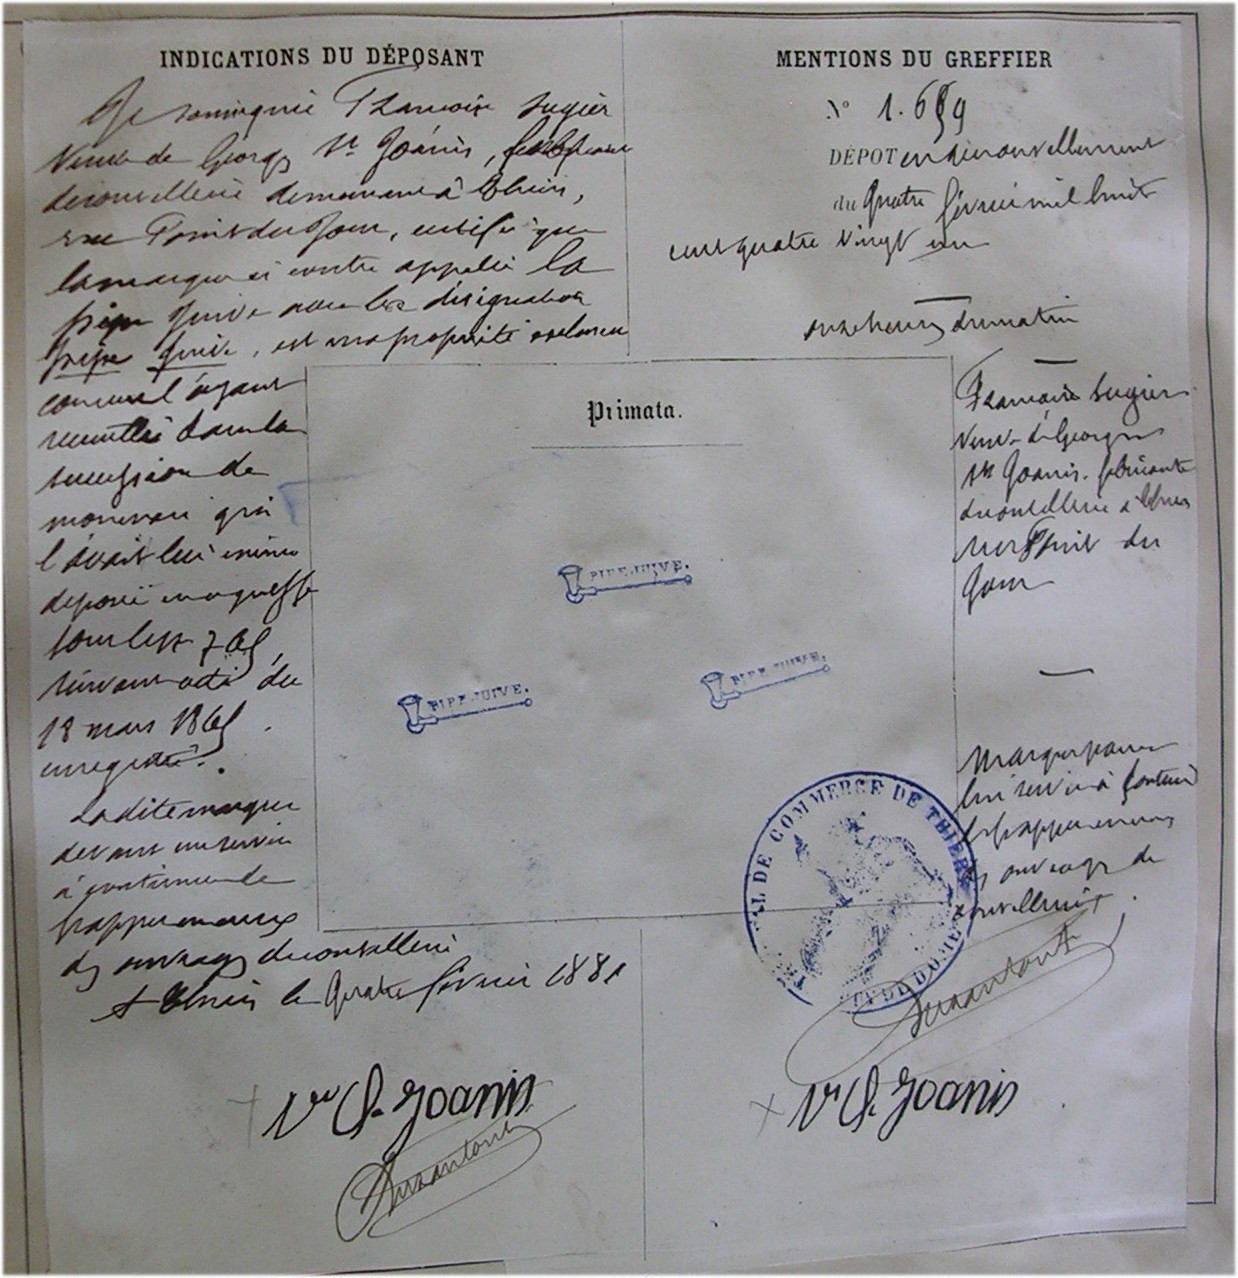 INDICATIONS DU DÉPOSANT
Je soussignée Françoise Sugier
Veuve de Georges St Joanis, fabricante
de coutellerie demeurant à Thiers,
rue Point du Jour, certifie que
la marque ci contre appelée la
pipe juive avec les désignation
pipe juive, est ma propriété exclusive
comme l'ayant
recueillie dans la
succession de
mon mari qui
l'avait lui même
déposée au greffe
sous les
suivant acte du
18 mars
enregistré.
La dite marque
devant me servir
à continuer de
frapper mes
des ouvrages de coutellerie
A Thiers le Quatre février 1881
Vve G. Joanis
MENTIONS DU GREFFIER
N° 1.659
DÉPOT en renouvellement
du Quatre février mil huit
cent quatre vingt un
onze heures du matin
Françoise Sugier
Veuve de Georges
St Joanis. fabricante
de coutellerie à Thiers
rue Point du
Jour
Marque pour
lui servir à continuer
de frapper
des ouvrages de
coutellerie.
Vve G. Joanis
Primata.
PIPE JUIVE.
PIPE JUIVE.
PIPE JUIVE.
AL DE COMMERCE DE THIERS
PUY DE DOME